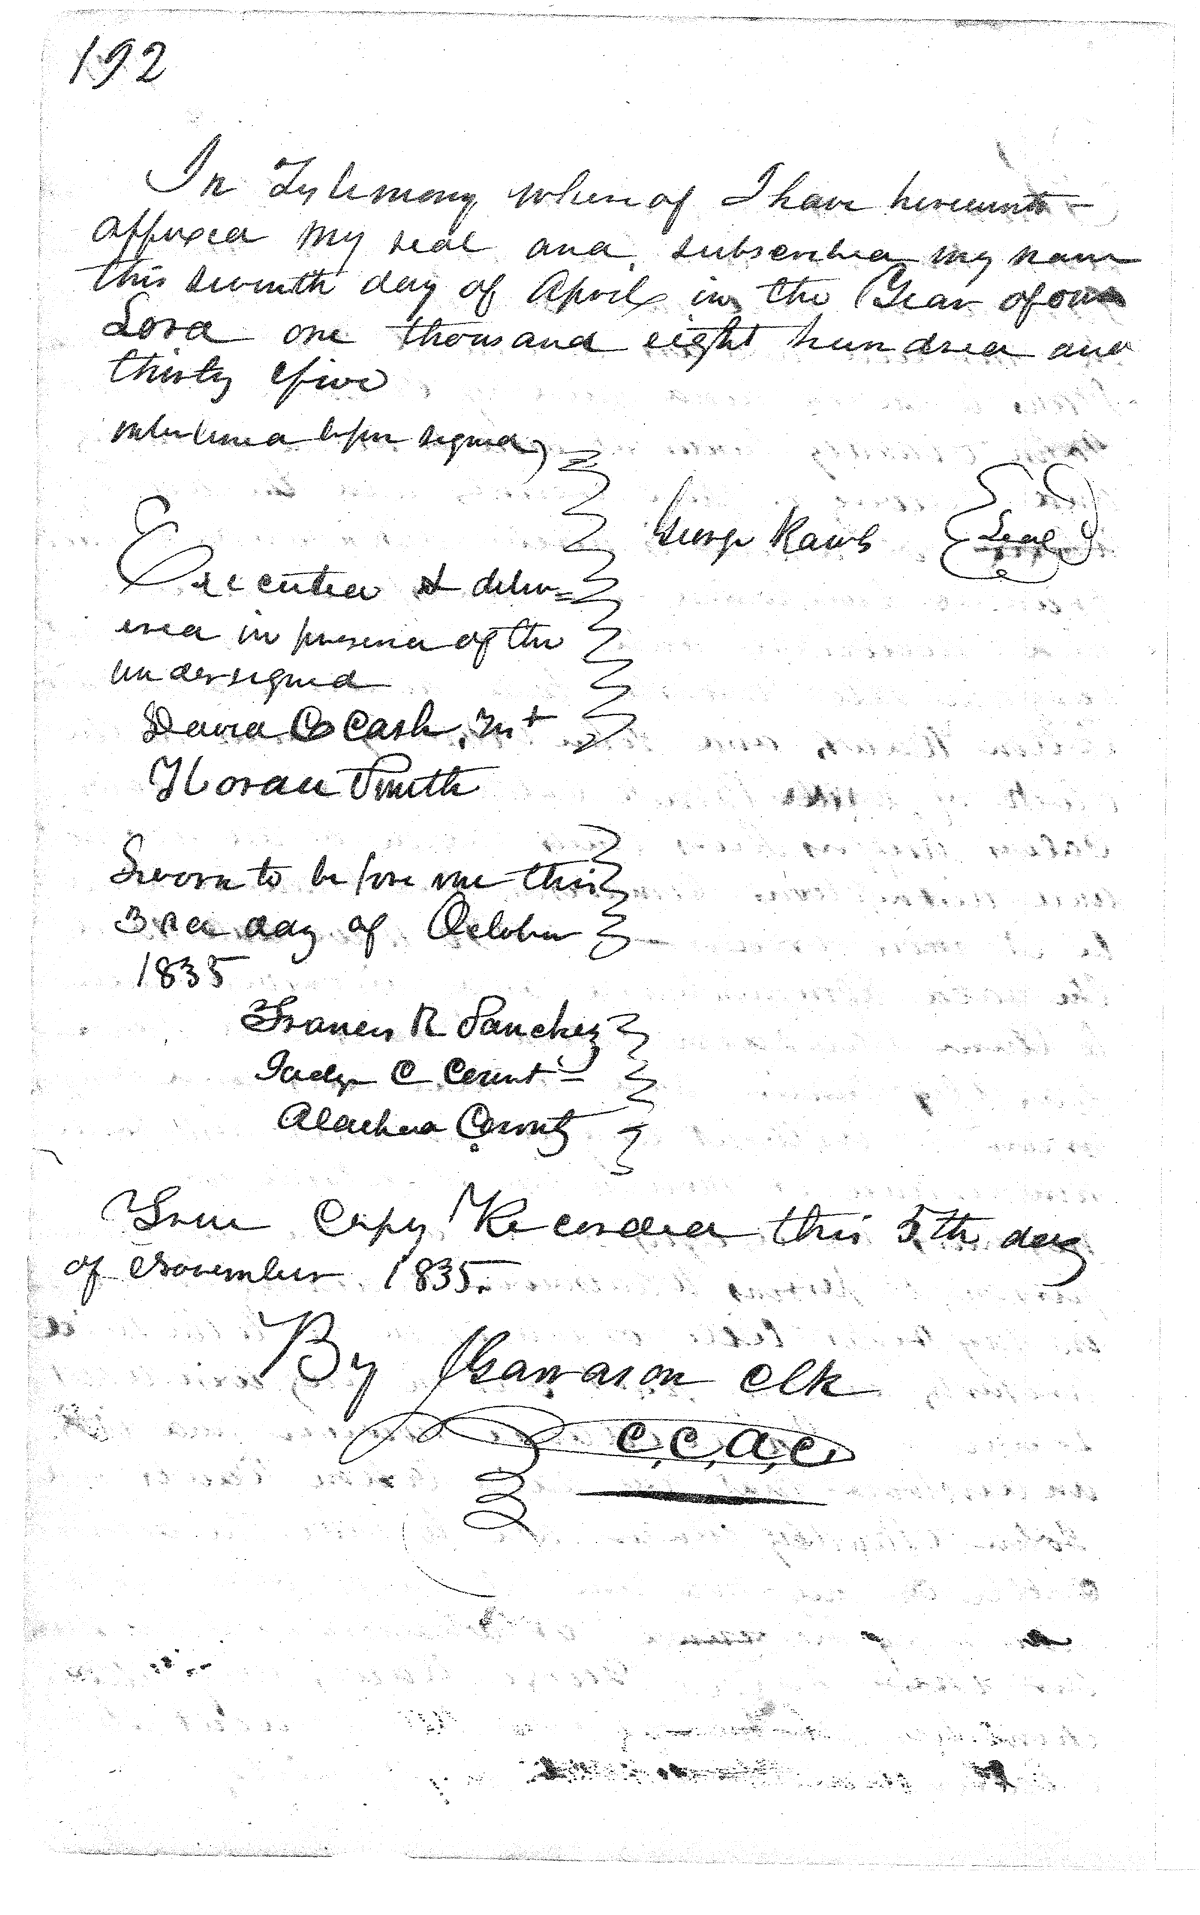 192
In Testimony whereof I have hereunto
affixed my seal and subscribed my name
this seventh day of April in the Year of our
Lord one thousand eight hundred and
thirty five
interlined before signed
George Rawls Seal
Executed & deliv=
ered in presence of the
undersigned
David C Cash,
Horace Smith
Sworn to before me this
3rd day of October
1835
Francis R Sanchez
Judge C Court
Alachua County
True Copy Recorded this 5th day
of November 1835.
By Clk
C,C,A,C,